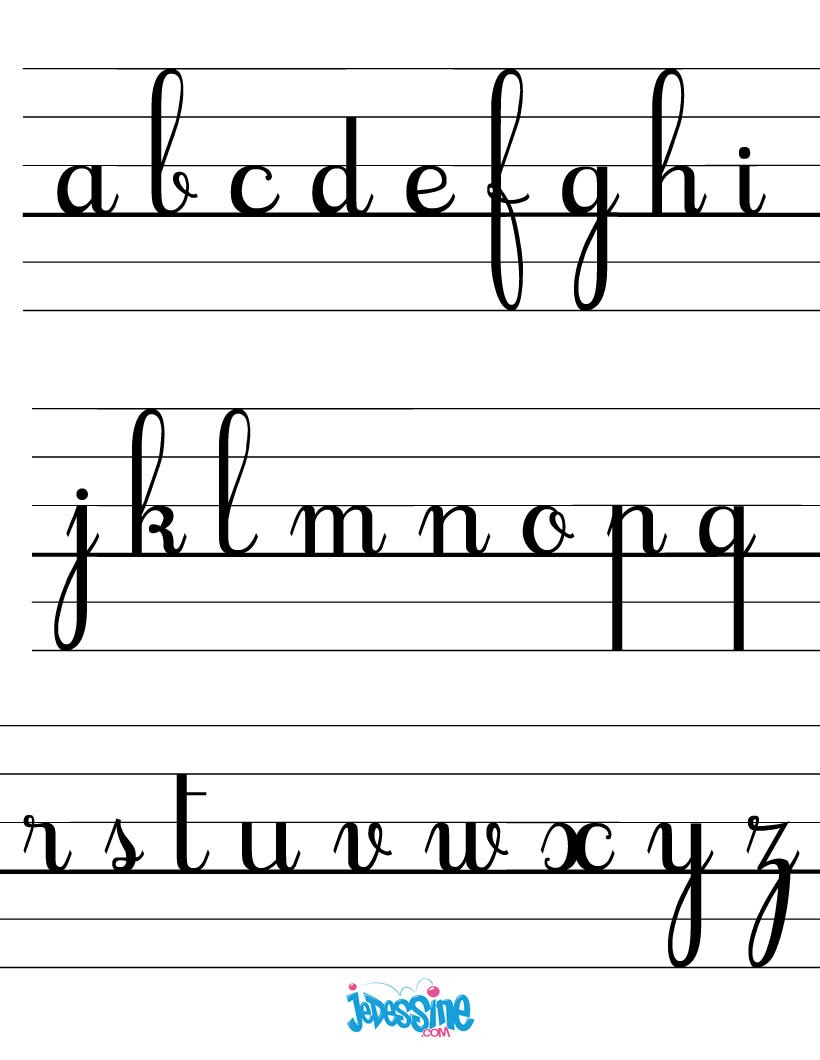 a b c d e f g h i
j k l m n o p q
r s t u v w x y z
JEDESSINE
.COM